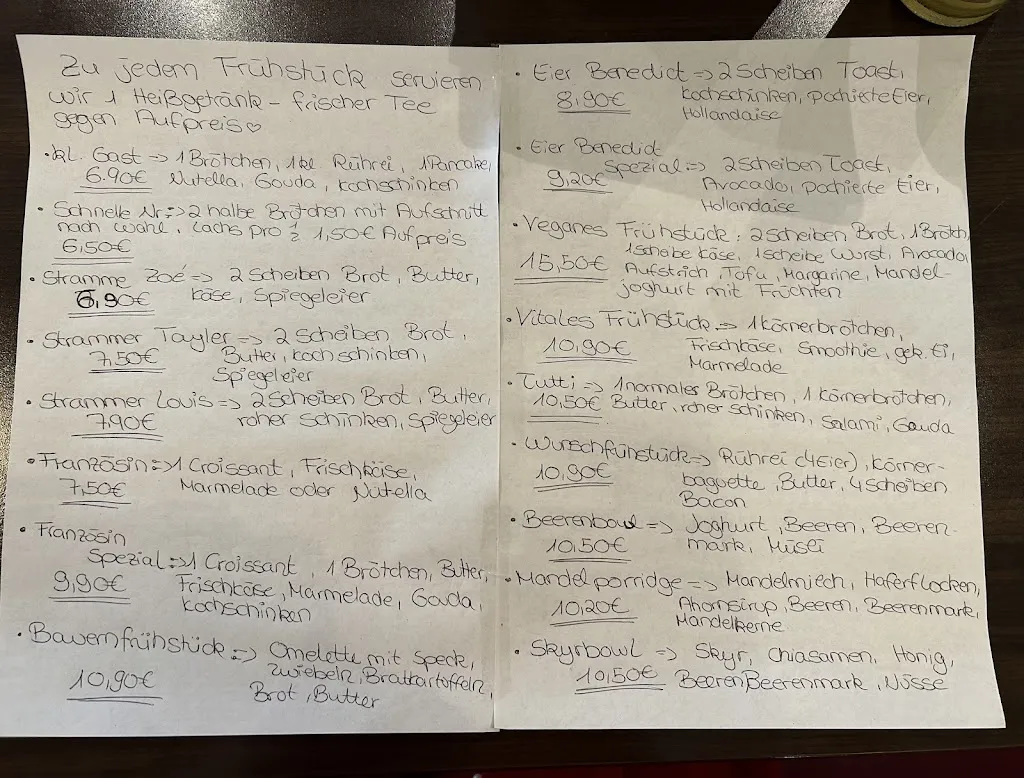 Zu jedem Frühstück servieren
wir 1 Heißgetränk - frischer Tee
gegen Aufpreis ♡
• kl. Gast => 1 Brötchen, 1 kl Rührei, 1 Pancake,
6.90€ Nutella, Gouda, Kochschinken
• Schnelle Nr. => 2 halbe Brötchen mit Aufschnitt
nach Wahl, Lachs pro ½ 1,50€ Aufpreis
6,50€
• Stramme Zoé => 2 Scheiben Brot, Butter,
6,90€ Käse, Spiegeleier
• Strammer Tayler => 2 Scheiben Brot,
7,50€ Butter, Kochschinken,
Spiegeleier
• Strammer Louis => 2 Scheiben Brot, Butter,
7,90€ roher Schinken, Spiegeleier
• Französin => 1 Croissant, Frischkäse,
7,50€ Marmelade oder Nutella
• Französin
Spezial => 1 Croissant, 1 Brötchen, Butter,
9,90€ Frischkäse, Marmelade, Gouda,
Kochschinken
• Bauernfrühstück => Omelette mit Speck,
10,90€ Zwiebeln, Bratkartoffeln,
Brot, Butter
• Eier Benedict => 2 Scheiben Toast,
8,90€ Kochschinken, pochierte Eier,
Hollandaise
• Eier Benedict
Spezial => 2 Scheiben Toast,
9,20€ Avocado, pochierte Eier,
Hollandaise
• Veganes Frühstück: 2 Scheiben Brot, 1 Brötch,
1 Scheibe Käse, 1 Scheibe Wurst, Avocado,
15,50€ Aufstrich, Tofu, Margarine, Mandel-
joghurt mit Früchten
• Vitales Frühstück => 1 Körnerbrötchen,
10,90€ Frischkäse, Smoothie, gek. Ei,
Marmelade
• Tutti => 1 normales Brötchen, 1 Körnerbrötchen,
10,50€ Butter, roher Schinken, Salami, Gouda
• Wunschfühstück => Rührei (4 Eier), Körner-
10,90€ baguette, Butter, 4 Scheiben
Bacon
• Beerenbowl => Joghurt, Beeren, Beeren-
10,50€ mark, Müsli
• Mandelporridge => Mandelmilch, Haferflocken,
10,20€ Ahornsirup, Beeren, Beerenmark,
Mandelkerne
• Skyrbowl => Skyr, Chiasamen, Honig,
10,50€ Beeren, Beerenmark, Nüsse